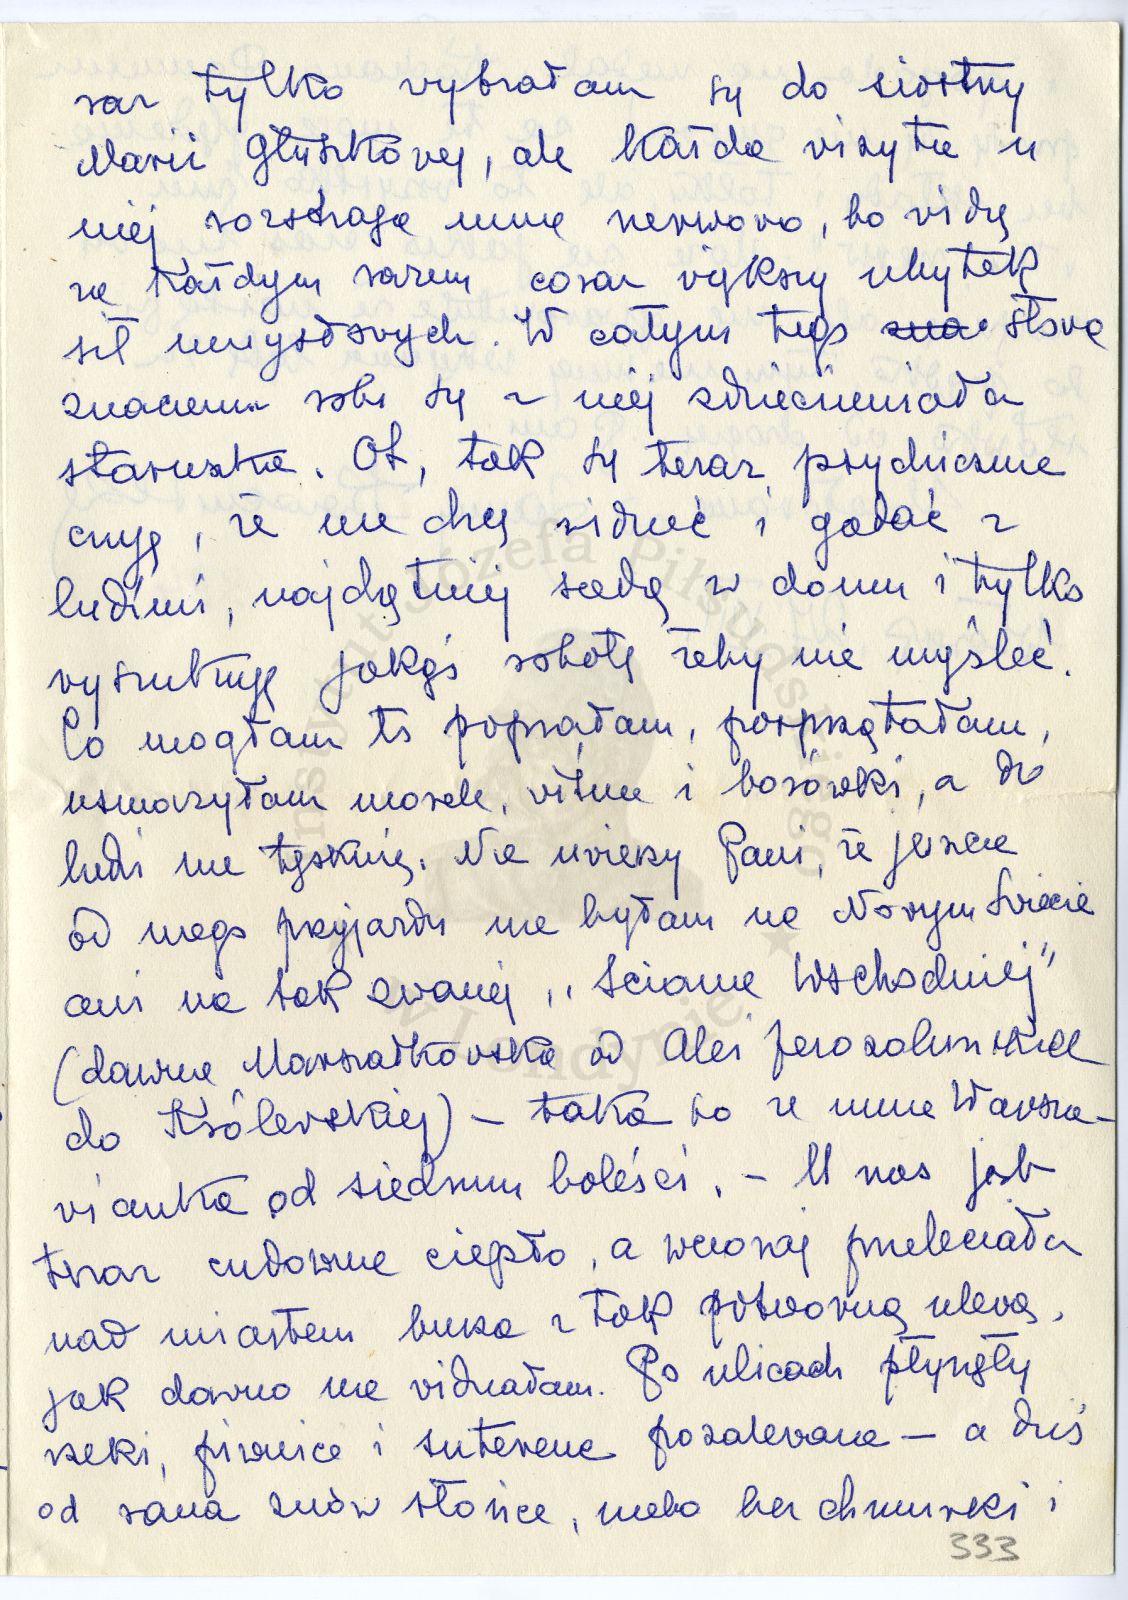 raz tylko wybrałam się do siostry
Marii Głuszkowej, ale każda wizyta u
niej rozstraja mnie nerwowo, bo widzę
za każdym razem coraz większy ubytek
sił umysłowych. W całym tego zna słowa
znaczeniu robi się z niej zdziecinniała
staruszka. Ot, tak się teraz psychicznie
czuję, że nie chcę widzieć i gadać z
ludźmi, najchętniej siedzę w domu i tylko
wyszukuję jakąś robotę żeby nie myśleć.
Co mogłam to poprałam, posprzątałam,
usmażyłam morele, wiśnie i borówki, a do
ludzi nie tęsknię. Nie uwierzy Pani, że jeszcze
od mego przyjazdu nie byłam na Nowym Świecie
ani na tak zwanej „Ścianie Wschodniej"
(dawna Marszałkowska od Alei Jerozolimskich
do Królewskiej) – taka to ze mnie Warsza-
wianka od siedmiu boleści. – U nas jest
teraz cudownie ciepło, a wczoraj przeleciała
nad miastem burza z tak potworną ulewą,
jak dawno nie widziałam. Po ulicach płynęły
rzeki, piwnice i sutereny pozalewane – a dziś
od rana znów słońce, niebo bez chmurki i
333
Instytut Józefa Piłsudskiego
w Londynie